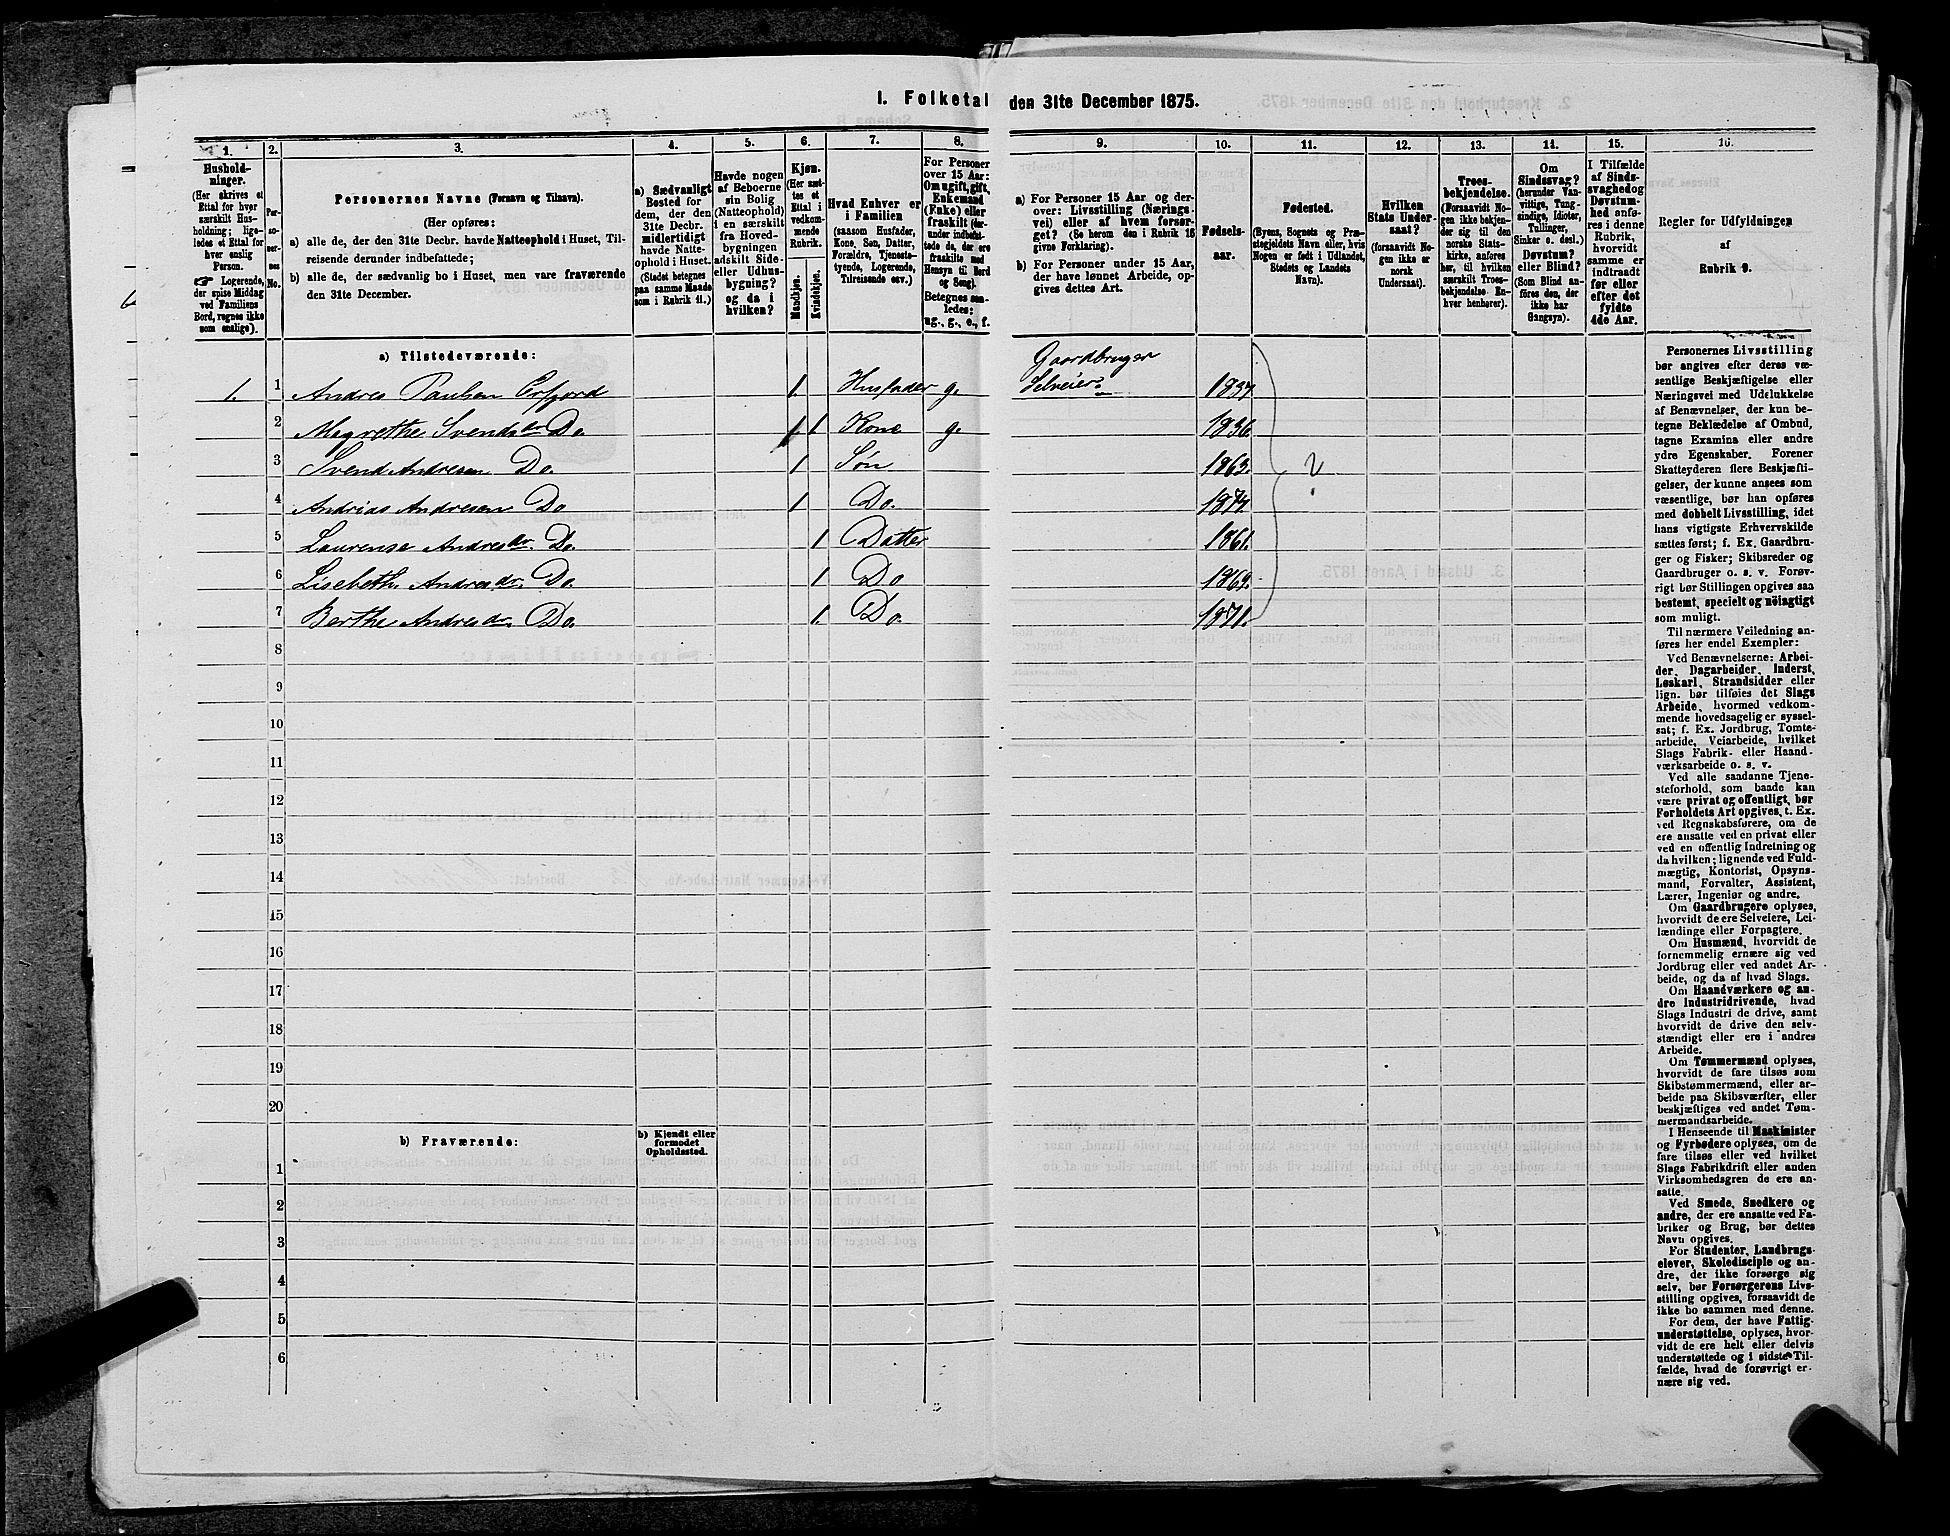 1. Folketal den 31te December 1875.
1.
Hushold-
ninger.
(Her skrives et
Ettal for hver
særskilt Hus-
holdning; lige-
ledes et Ettal for
hver enslig
Person.
☛ Logerende,
der spise Middag
ved Familiens
Bord, regnes ikke
som enslige).
2.
Per-
so-
ner-
nes
No.
3.
Personernes Navne (Fornavn og Tilnavn).
(Her opføres:
a) alle de, der den 31te Decbr. havde Natteophold i Huset, Til-
reisende derunder indbefattede;
b) alle de, der sædvanlig bo i Huset, men vare fraværende
den 31te December.
4.
a) Sædvanligt
Bosted for
dem, der den
31te Decbr.
midlertidigt
havde Natte-
ophold i Huset.
(Stedet betegnes
paa samme Maade
som i Rubrik 11.)
5.
Havde nogen
af Beboerne
sin Bolig
(Natteophold)
i en særskilt
fra Hoved-
bygningen
adskilt Side-
eller Udhus-
bygning?
og da i
hvilken?
6.
Kjøn.
(Her sæt-
tes et
Ettal i
vedkom-
mende
Rubrik.
Mandkjøn.
Kvindekjøn.
7.
Hvad Enhver er
i Familien
(saasom Husfader,
Kone, Søn, Datter,
Forældre, Tjeneste-
tyende, Logerende,
Tilreisende osv.)
8.
For Personer
over 15 Aar:
Om ugift, gift,
Enkemand
(Enke) eller
fraskilt (der-
under indbefat-
tede de, der ere
fraskilte med
Hensyn til Bord
og Seng).
Betegnes saa-
ledes:
ug., g., e., f.
9.
a) For Personer 15 Aar og der-
over: Livsstilling (Nærings-
vei) eller af hvem forsør-
get? (Se herom den i Rubrik 16
givne Forklaring).
b) For Personer under 15 Aar,
der have lønnet Arbeide, op-
gives dettes Art.
10.
Fødsels-
aar.
11.
Fødested.
(Byens, Sognets og Præ-
stegjeldets Navn eller, hvis
Nogen er født i Udlandet,
Stedets og Landets
Navn).
12.
Hvilken
Stats Under-
saat?
(forsaavidt No-
gen ikke er
norsk
Undersaat).
13.
Troes-
bekjendelse.
(Forsaavidt No-
gen ikke bekjen-
der sig til den
norske Stats-
kirke, anføres
her, til hvilken
særskilt Troes-
bekjendelse En-
hver henhører).
14.
Om
Sindssvag?
(herunder Van-
vittige, Tung-
sindige, Idioter,
Tullinger,
Sinker o. desl.)
Døvstum?
eller Blind?
(Som Blind an-
føres den, der
ikke har
Gangsyn).
15.
I Tilfælde
af Sinds-
svaghed og
Døvstum-
hed anfø-
res i denne
Rubrik,
hvorvidt
samme er
indtraadt
før eller
efter det
fyldte
4de Aar.
16.
Regler for Udfyldningen
af
Rubrik 9.
a) Tilstedeværende:
1. 1 Andres Paulsen Orfjord 1. Husfader g. Gaardbruger Selveier 1837.
2 Magrethe Svendsdr. Do. 1 Kone g. 1836.
3 Svend Andresen Do. 1 Søn 1863. ?
4 Andrias Andresen Do 1 Do. 1874.
5 Laurense Andresdr. Do. 1 Datter 1861.
6 Lisebeth Andresdr. Do 1 Do 1869.
7 Berthe Andresdr. Do. 1. Do. 1871.
8
9
10
11
12
13
14
15
16
17
18
19
20
b) Fraværende:
b) Kjendt eller
formodet
Opholdssted.
1
2
3
4
5
6
Personernes Livsstilling
bør angives efter deres væ-
sentlige Beskjæftigelse eller
Næringsvei med Udelukkelse
af Benævnelser, der kun be-
tegne Beklædelse af Ombud,
tagne Examina eller andre
ydre Egenskaber. Forener
Skatteyderen flere Beskjæfti-
gelser, der kunne ansees som
væsentlige, bør han opføres
med dobbelt Livsstilling, idet
hans vigtigste Erhvervskilde
sættes først; f. Ex. Gaardbru-
ger og Fisker; Skibsreder og
Gaardbruger o. s. v. Forøv-
rigt bør Stillingen opgives saa
bestemt, specielt og nøiagtigt
som muligt.
Til nærmere Veiledning an-
føres her endel Exempler:
Ved Benævnelserne: Arbei-
der, Dagarbeider, Inderst,
Løskarl, Strandsidder eller
lign. bør tilføies det Slags
Arbeide, hvormed vedkom-
mende hovedsagelig er syssel-
sat; f. Ex. Jordbrug, Tomte-
arbeide, Veiarbeide, hvilket
Slags Fabrik- eller Haand-
værksarbeide o. s. v.
Ved alle saadanne Tjene-
steforhold, som baade kan
være privat og offentligt, bør
Forholdets Art opgives, t. Ex.
ved Regnskabsførere, om de
ere ansatte ved en privat eller
ved en offentlig Indretning og
da hvilken; lignende ved Fuld-
mægtig, Kontorist, Opsyns-
mand, Forvalter, Assistent,
Lærer, Ingeniør og andre.
Om Gaardbrugere oplyses,
hvorvidt de ere Selveiere, Lei-
lændinge eller Forpagtere.
Om Husmænd, hvorvidt de
fornemmelig ernære sig ved
Jordbrug eller ved andet Ar-
beide, og da af hvad Slags.
Om Haandværkere og an-
dre Industridrivende, hvad
Slags Industri de drive, samt
hvorvidt de drive den selv-
stændigt eller ere i andres
Arbeide.
Om Tømmermænd oplyses,
hvorvidt de fare tilsøs som
Skibstømmermænd, eller ar-
beide paa Skibsværfter, eller
beskjæftiges ved andet Tøm-
mermandsarbeide.
I Henseende til Maskinister
og Fyrbødere oplyses, om de
fare tilsøs eller ved hvilket
Slags Fabrikdrift eller anden
Virksomhedsgren de ere an-
satte.
Ved Smede, Snedkere og
andre, der ere ansatte ved Fa-
briker og Brug, bør dettes
Navn opgives.
For Studenter, Landbrugs-
elever, Skoledisciple og an-
dre, der ikke forsørge sig
selv, bør Forsørgerens Livs-
stilling opgives, forsaavidt de
ikke bo sammen med denne.
For dem, der have Fattig-
understøttelse, oplyses, hvor-
vidt de ere helt eller delvis
understøttede og i sidste Til-
fælde, hvad de forøvrigt er-
nære sig ved.